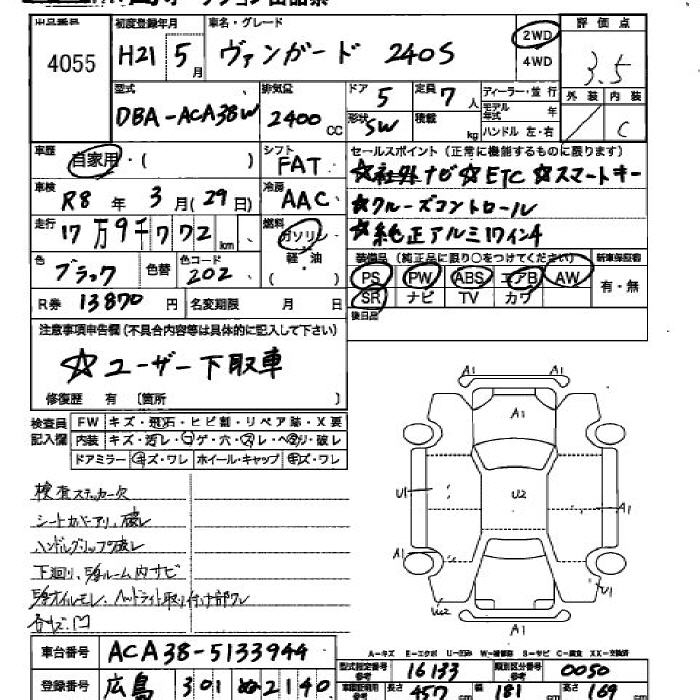 出品番号 初度登録年月 車名・グレード 評価点
4055 H21 5月 ヴァンガード 240S 2WD 4WD 3.5
型式 排気量 ドア 定員 ディーラー・並行 外装 内装
DBA-ACA38W 2400 CC 5 7人 モデル年式 年 C
形状 SW 積載 kg ハンドル 左・右
車歴 自家用・( ) シフト FAT セールスポイント(正常に機能するものに限ります)
☆社外ナビ☆ETC ☆スマートキー
車検 R8年 3月(29日) 冷房 AAC ☆クルーズコントロール
走行 17万9千772km 燃料 ガソリン 軽・油 ( ) ☆純正アルミ17インチ
色 ブラック 色替 色コード 202 装備品(純正品に限り○をつけてください) 新車保証書
PS PW ABS エアB AW 有・無
R券 13870円 名変期限 月 日 SR ナビ TV カワ
後日品
注意事項申告欄(不具合内容等は具体的に記入して下さい)
☆ユーザー下取車
修復歴 有 〔箇所 〕
検査員記入欄 FW キズ・飛石・ヒビ割・リペア跡・X要
内装 キズ・汚レ・コゲ・穴・スレ・ヘタリ・破レ
ドアミラー キズ・ワレ ホイール・キャップ キズ・ワレ
A1 A1
A1
U1 U2 A1
A1
W2
A1
検査ステッカー欠
シートカバーアリ、破レ
ハンドルグリップ破レ
下廻リ、
ルーム内サビ
オイルモレ、ヘッドライト取リ付け部ワレ
A-キズ E-エクボ U-凹み W-補修跡 S-サビ C-腐食 XX-交換済
車台番号 ACA38-5133944 型式指定番号 参考 16133 類別区分番号 参考 0050
登録番号 広島 301 ぬ2140 長さ 457 cm 幅 181 cm 高さ 169 cm